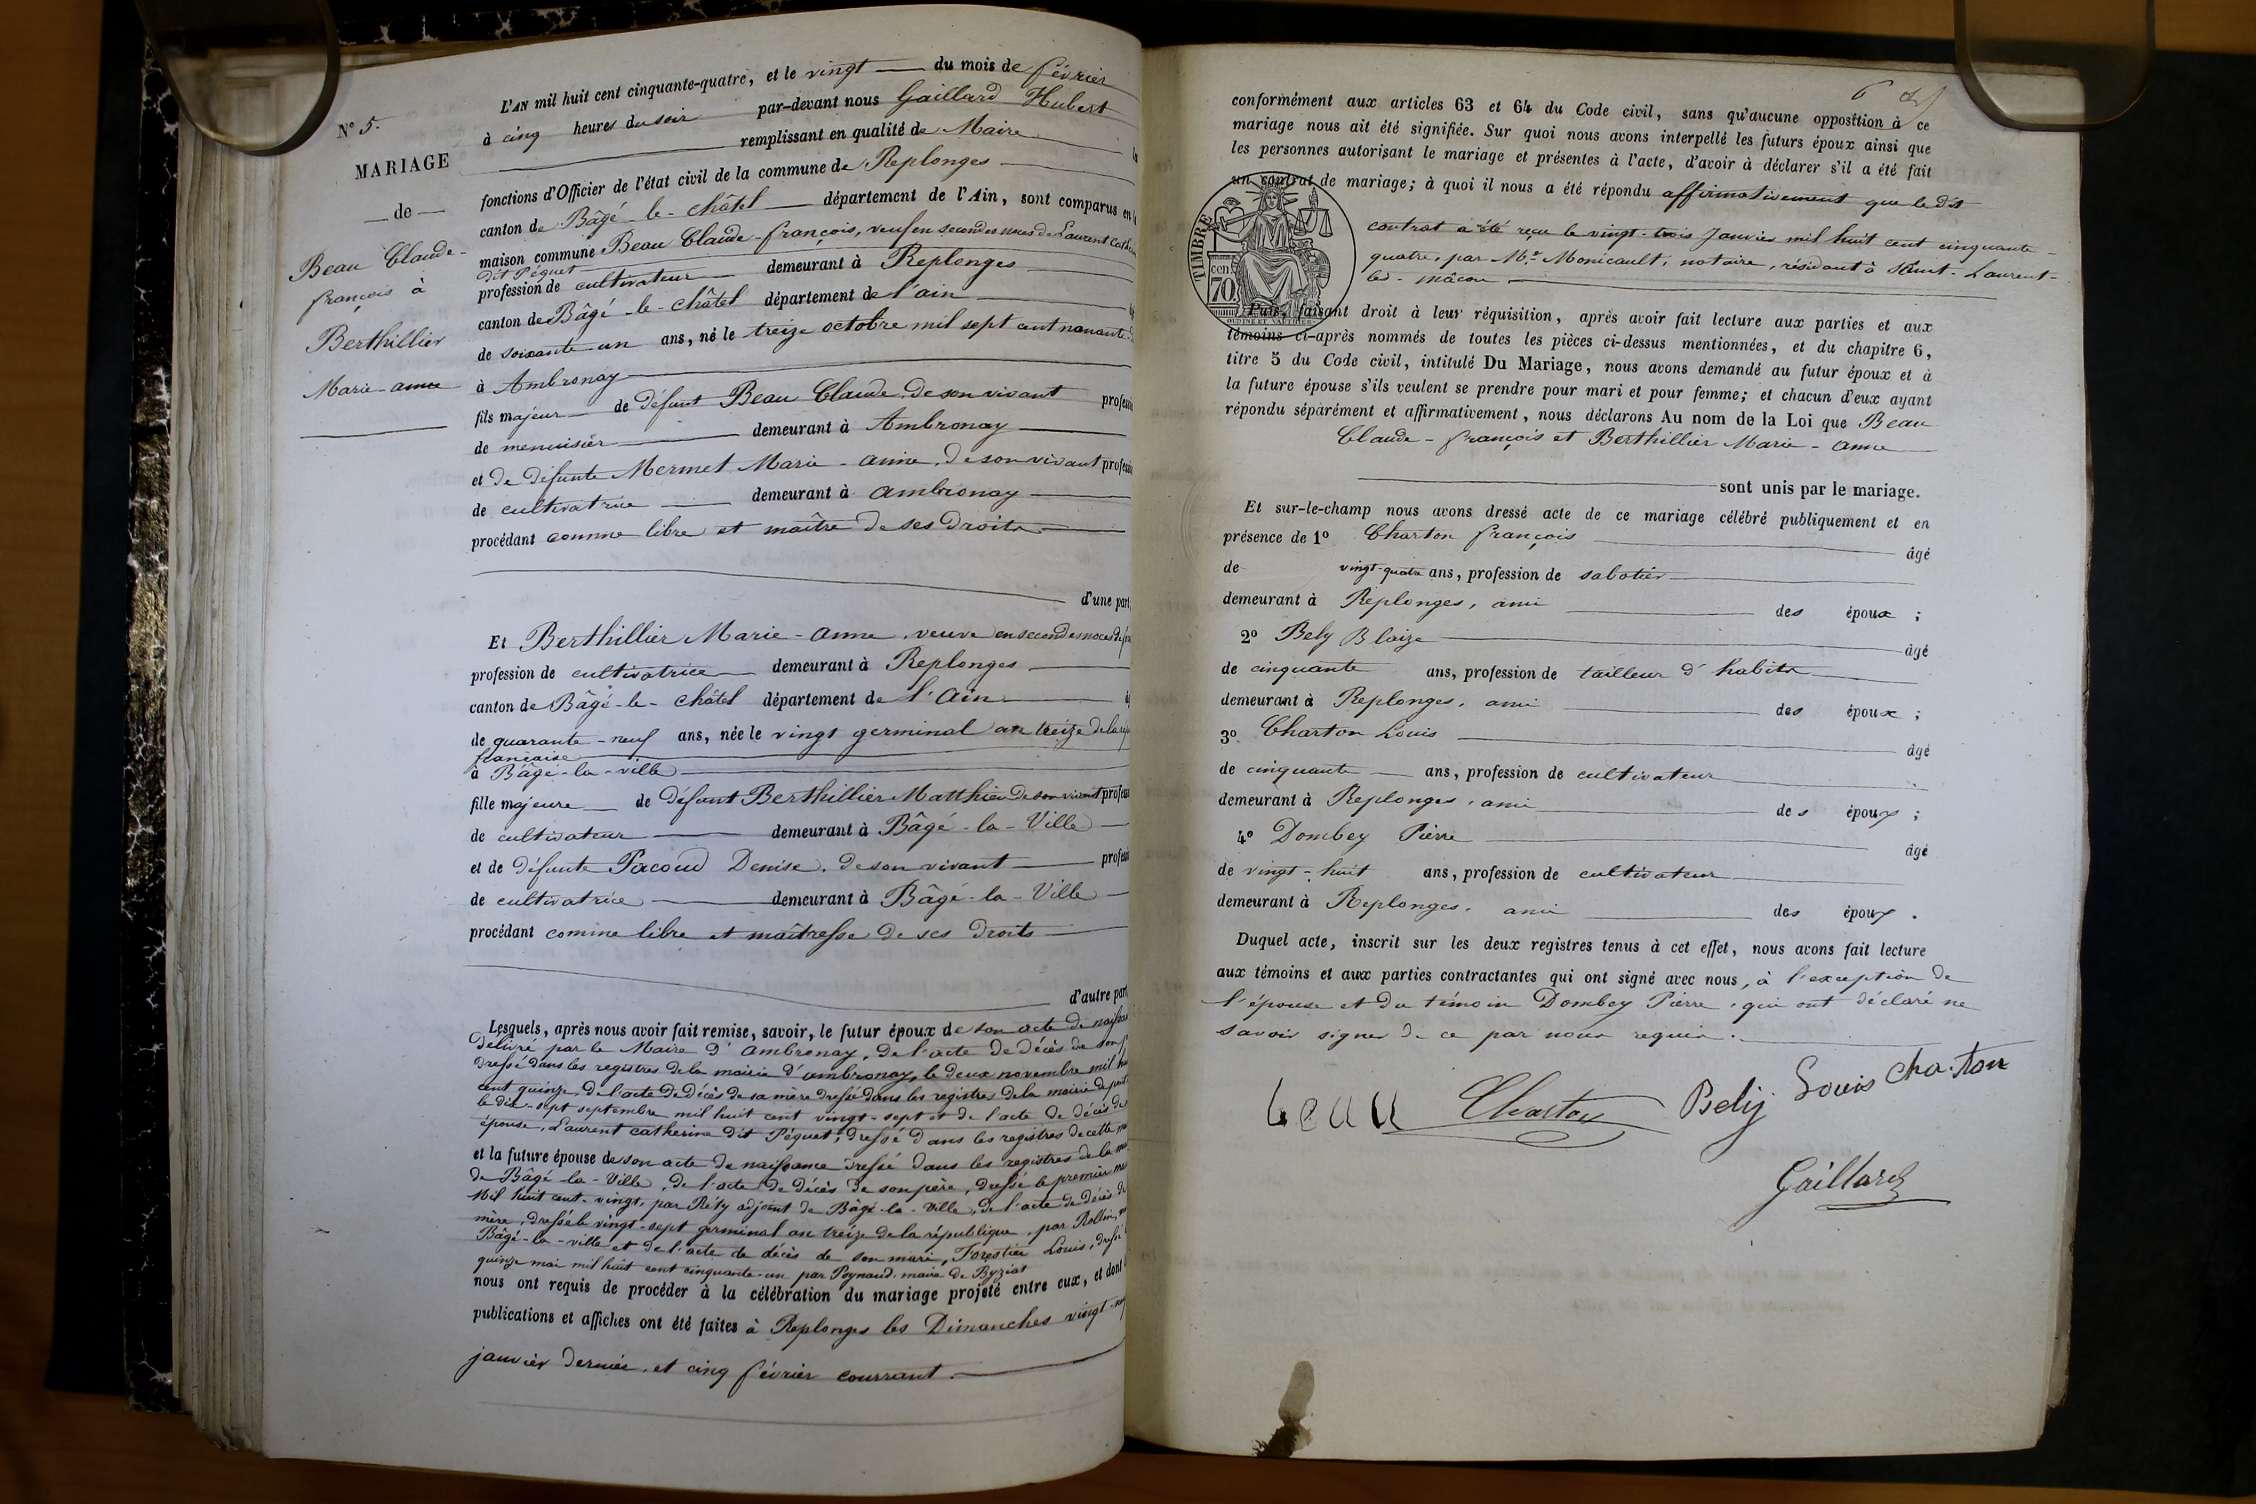 N° 5.
MARIAGE
de
Beau Claude-
françois à
Berthillier
Marie-anne
L'AN mil huit cent cinquante-quatre, et le vingt du mois de février
à cinq heures du soir par-devant nous Gaillard Hubert
remplissant en qualité de Maire
fonctions d'Officier de l'état civil de la commune de Replonges
canton de Bâgé-le-châtel département de l'Ain, sont comparus en
maison commune Beau Claude-françois, veuf en secondes noces de Laurent
dit Péguet
profession de cultivateur demeurant à Replonges
canton de Bâgé-le-châtel département de l'ain
de soixante-un ans, né le treize octobre mil sept cent nonante
à Ambronay
fils majeur de défunt Beau Claude, de son vivant
de menuisier demeurant à Ambronay
et de défunte Mermet Marie-anne, de son vivant
de cultivatrice demeurant à ambronay
procédant comme libre et maître de ses droits
d'une part
Et Berthillier Marie-anne, veuve en secondes noces de
profession de cultivatrice demeurant à Replonges
canton de Bâgé-le-châtel département de l'ain
de quarante-neuf ans, née le vingt germinal an treize de la
française
à Bâgé-la-ville
fille majeure de défunt Berthillier Matthieu de son vivant
de cultivateur demeurant à Bâgé-la-Ville
et de défunte Pacoud Denise, de son vivant
de cultivatrice demeurant à Bâgé-la-Ville
procédant comme libre et maîtresse de ses droits
d'autre part
Lesquels, après nous avoir fait remise, savoir, le futur époux de son acte de
délivré par le Maire d'ambronay, de l'acte de décès de son
dressé dans les registres de la mairie d'ambronay, le deux novembre mil
cent quinze, de l'acte de décès de sa mère dressé dans les registres de la mairie de
le dix-sept septembre mil huit cent vingt-sept et de l'acte de décès de
épouse, Laurent catherine dit Péguet, dressé dans les registres de cette
et la future épouse de son acte de naissance dressé dans les registres de la
de Bâgé-la-Ville, de l'acte de décès de son père, dressé le premier
Mil huit cent-vingt, par Réty adjoint de Bâgé-la-Ville, de l'acte de décès de
mère, dressé le vingt-sept germinal an treize de la république, par Rollin,
Bâgé-la-ville et de l'acte de décès de son mari, Forestier Louis, dressé
quinze mai mil huit cent cinquante-un par Poynaud, maire de Byziat
nous ont requis de procéder à la célébration du mariage projeté entre eux, et dont
publications et affiches ont été faites à Replonges les Dimanches vingt
janvier dernier, et cinq février courrant.
6
conformément aux articles 63 et 64 du Code civil, sans qu'aucune opposition à ce
mariage nous ait été signifiée. Sur quoi nous avons interpellé les futurs époux ainsi que
les personnes autorisant le mariage et présentes à l'acte, d'avoir à déclarer s'il a été fait
un contrat de mariage; à quoi il nous a été répondu affirmativement que le dit
contrat a été reçu le vingt-trois Janvier mil huit cent cinquante-
quatre, par Me Monicault, notaire, résidant à Saint-Laurent-
les-mâcon
TIMBRE
cen
70.
OUDINÉ ET VAUTHIER
Puis, faisant droit à leur réquisition, après avoir fait lecture aux parties et aux
témoins ci-après nommés de toutes les pièces ci-dessus mentionnées, et du chapitre 6,
titre 5 du Code civil, intitulé Du Mariage, nous avons demandé au futur époux et à
la future épouse s'ils veulent se prendre pour mari et pour femme; et chacun d'eux ayant
répondu séparément et affirmativement, nous déclarons Au nom de la Loi que Beau
Claude-françois et Berthillier Marie-anne
sont unis par le mariage.
Et sur-le-champ nous avons dressé acte de ce mariage célébré publiquement et en
présence de 1° Charton françois âgé
de vingt-quatre ans, profession de sabotier
demeurant à Replonges, ami des époux ;
2° Bely Blaize âgé
de cinquante ans, profession de tailleur d'habits
demeurant à Replonges, ami des époux ;
3° Charton Louis âgé
de cinquante ans, profession de cultivateur
demeurant à Replonges, ami des époux ;
4° Dombey Pierre âgé
de vingt-huit ans, profession de cultivateur
demeurant à Replonges, ami des époux .
Duquel acte, inscrit sur les deux registres tenus à cet effet, nous avons fait lecture
aux témoins et aux parties contractantes qui ont signé avec nous, à l'exception de
l'épouse et du témoin Dombey Pierre, qui ont déclaré ne
savoir signer de ce par nous requis.
beau Charton Belij Louis charton
Gaillard